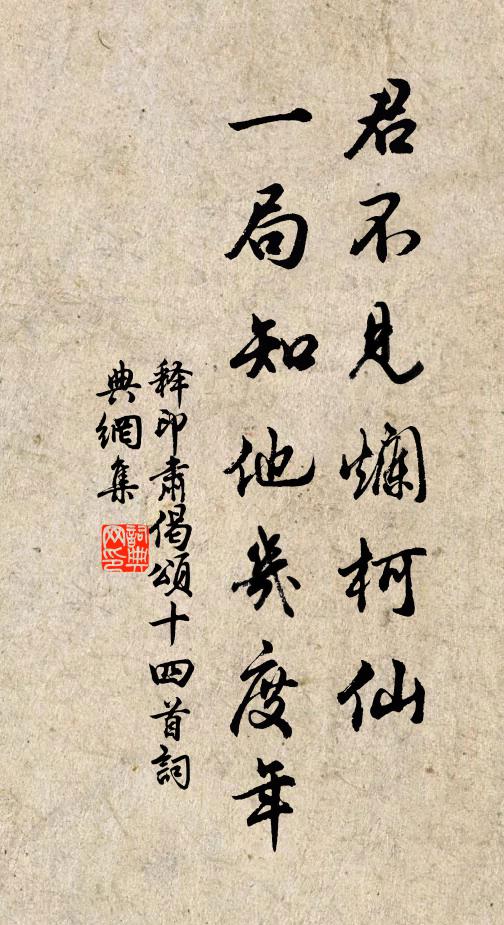 君不見爛柯仙
一局知他幾度年
釋印肅偈頌十四首詞
典網集
詞典網印